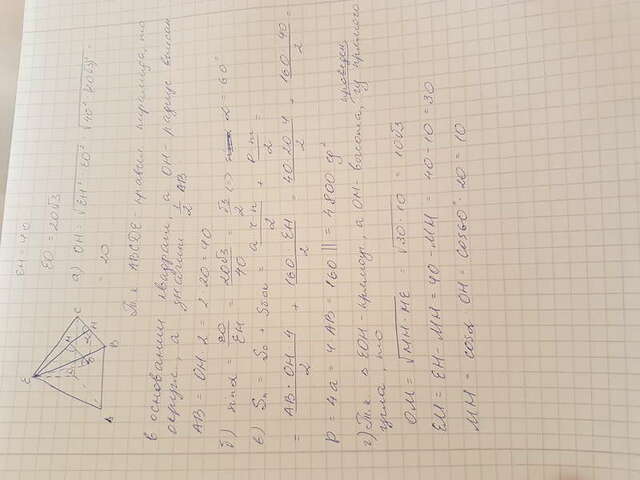 EH = 40
EO = 20√3
а) OH = √EH² - EO² = √40² - (20√3)² =
= 20
Т.к ABCDE - правил пирамида, то
в основании квадрат, а OH - радиус вписан
окруж, а значит 1/2 AB
AB = OH · 2 = 2 · 20 = 40
б) sin α = EO/EH = 20√3/40 = √3/2 (=) α = 60°
в) Sп = So + Sбок = a · 4 · h/2 + P · m/2 =
= AB · OH · 4/2 + 160 · EH/2 = 40 · 20 · 4/2 + 160 · 40/2 =
P = 4a = 4 AB = 160 || = 4800 ед²
проведен.
г) Т.к △ EOH - прямоуг, а OM - высота, из прямого
угла, то
OM = √MH · ME = √30 · 10 = 10√3
EM = EH - MH = 40 - MH = 40 - 10 = 30
MH = cos α OH = cos 60° · 20 = 10
E
M
C
O
H
A
B